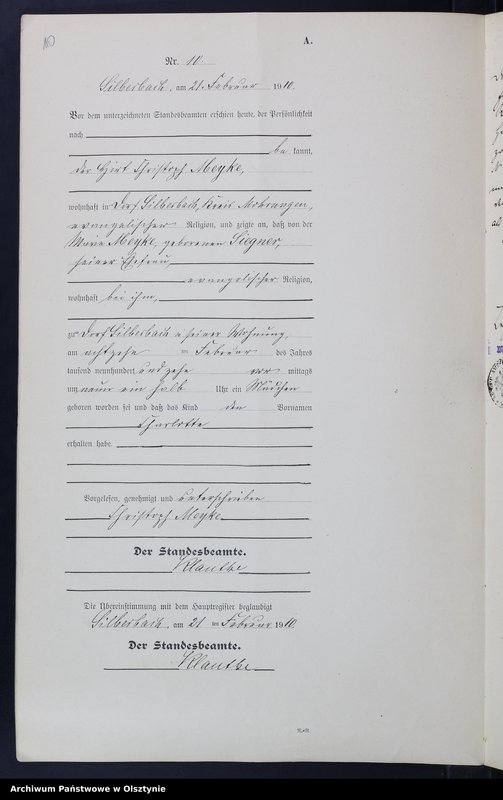 A.
Nr. 10.
Silberbach, am 21. Februar 1910.
Vor dem unterzeichneten Standesbeamten erschien heute, der Persönlichkeit
nach
be kannt,
der Hirt Christoph Meyke,
wohnhaft in Dorf Silberbach, Kreis Mohrungen,
evangelischer Religion, und zeigte an, daß von der
Meyke, geborenen Siegner,
seiner Ehefrau,
evangelischer Religion,
wohnhaft bei ihm,
zu Dorf Silberbach in seiner Wohnung,
am achtzehn ten Februar des Jahres
tausend neunhundert und zehn vor mittags
um neun ein halb Uhr ein Mädchen
geboren worden sei und daß das Kind den Vornamen
Charlotte
erhalten habe.
Vorgelesen, genehmigt und unterschrieben
Christoph Meyke
Der Standesbeamte.
Klauthe
Die Übereinstimmung mit dem Hauptregister beglaubigt
Silberbach, am 21 ten Februar 1910
Der Standesbeamte.
Klauthe
Archiwum Państwowe w Olsztynie